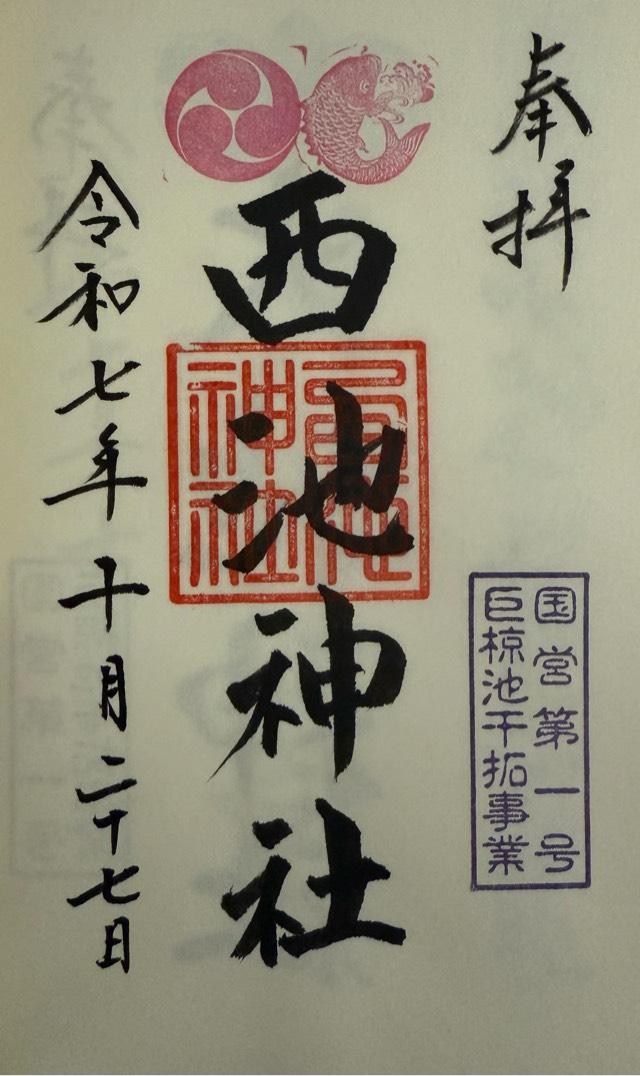 奉拝
国営第一号
巨椋池干拓事業
西池神社
令和七年十月二十七日